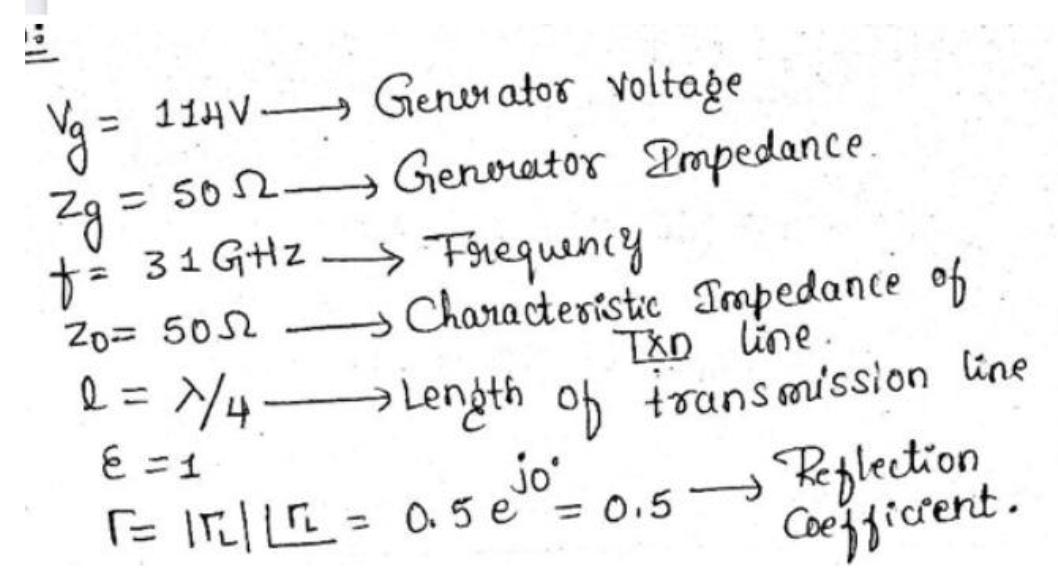 Vg = 114V → Generator voltage
Zg = 50 Ω → Generator Impedance.
f = 31 GHz → Frequency
Z0 = 50Ω → Characteristic Impedance of
TXD line.
l = λ/4 → Length of transmission line
ε = 1
Γ = |ΓL| ∠ΓL = 0.5 e^j0° = 0.5 → Reflection
Coefficient.